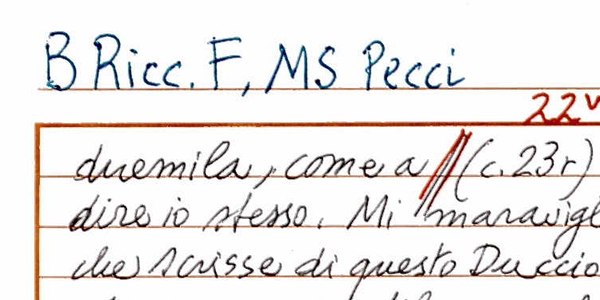 B Ricc. F, MS Pecci
22v
duemila, come a // (c. 23r)
dire io stesso. Mi maravigl
che scrisse di questo Duccio